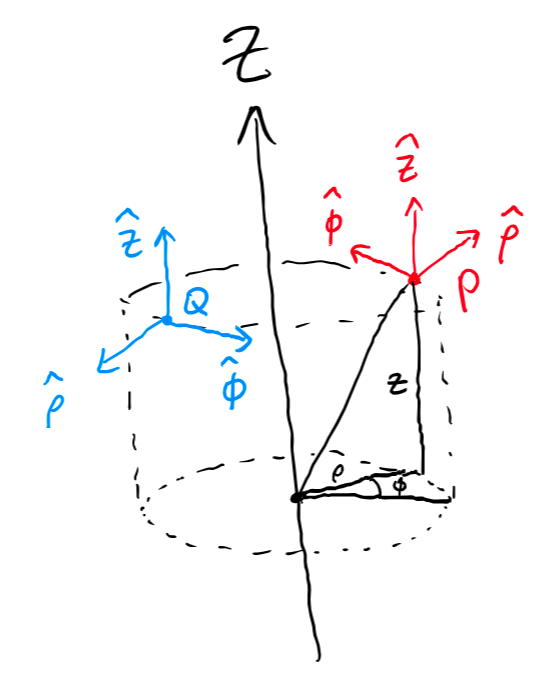 Z
ẑ
ϕ̂
ρ̂
P
ẑ
Q
ρ̂
ϕ̂
z
ρ
ϕ